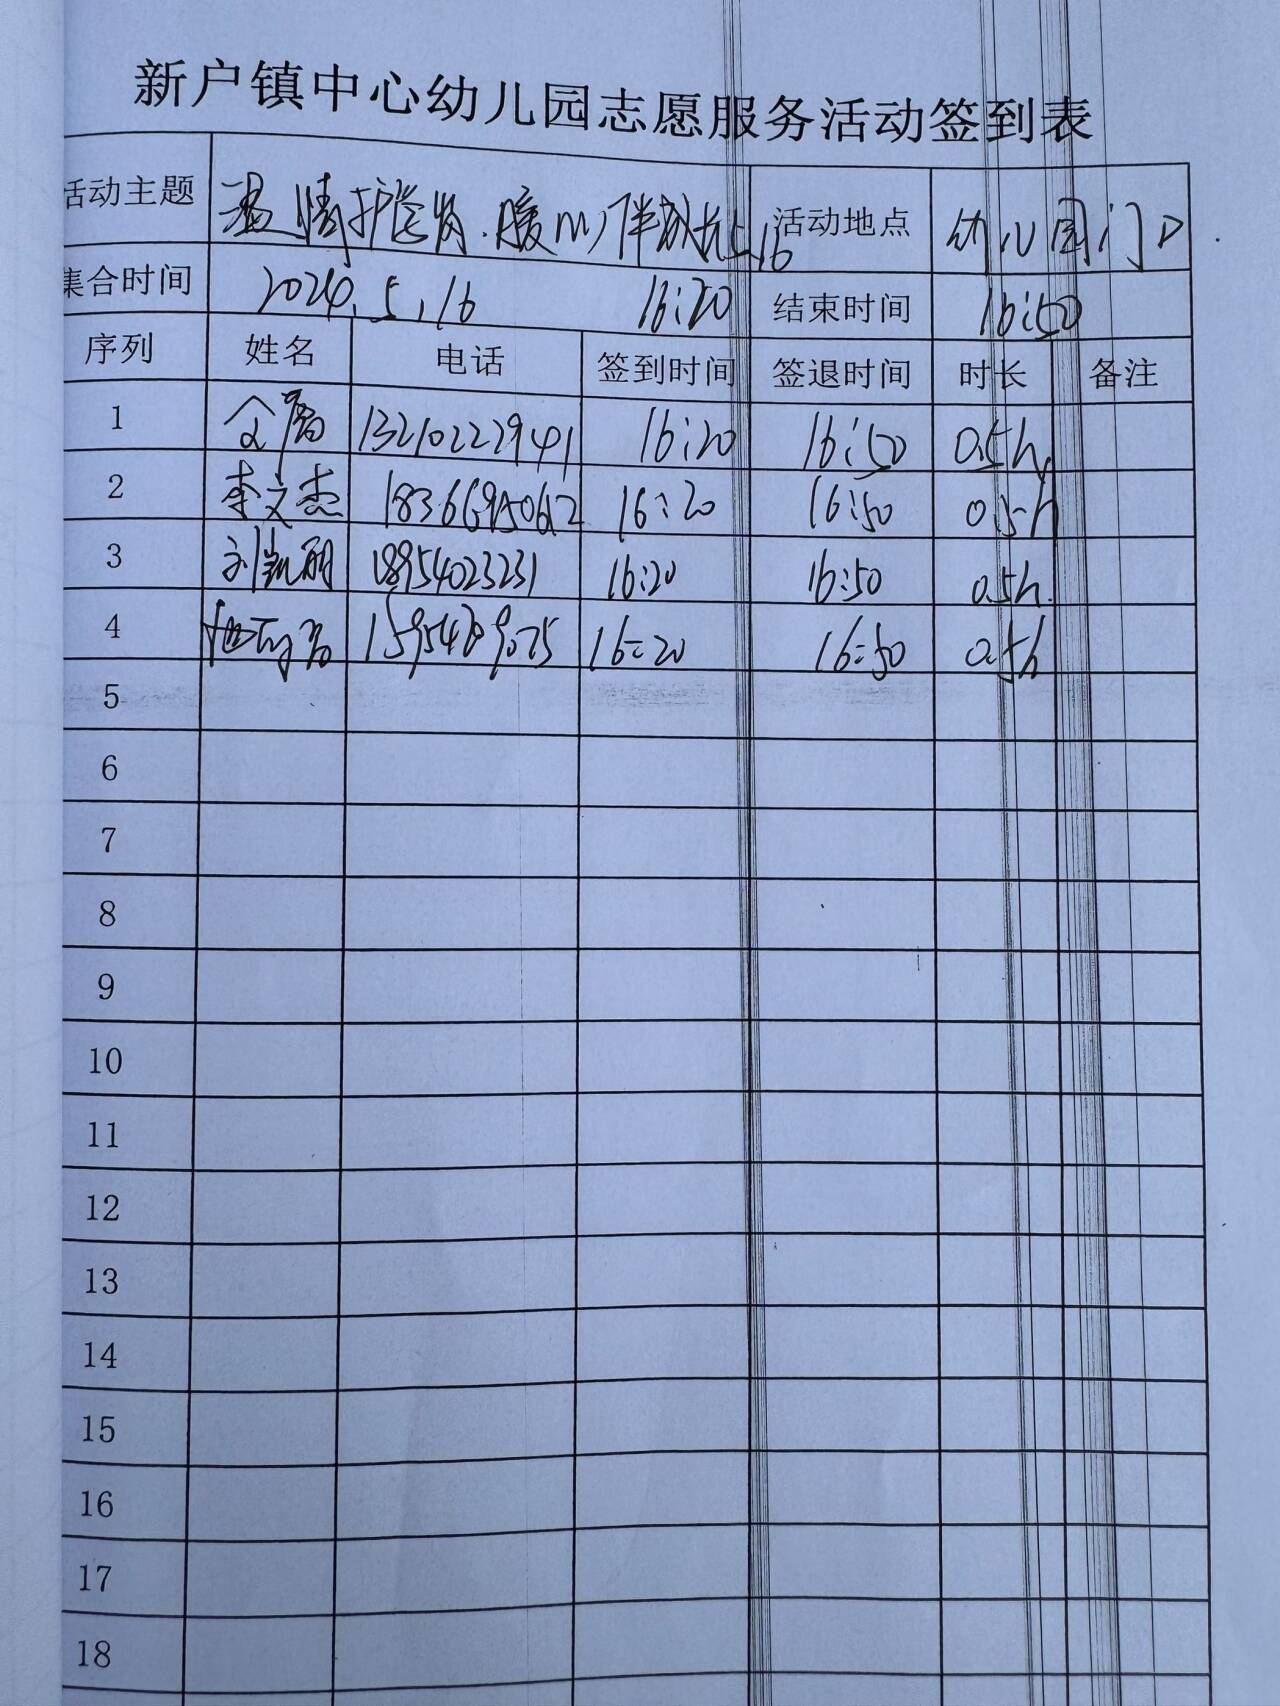 新户镇中心幼儿园志愿服务活动签到表
活动主题 温情护学岗.暖心伴成长5.16 活动地点 幼儿园门口
集合时间 2024.5.16 16:20 结束时间 16:50
序列 姓名 电话 签到时间 签退时间 时长 备注
1 13210227941 16:20 16:50 0.5h
2 李文杰 16:20 16:50 0.5h
3 刘凯丽 18954023231 16:20 16:50 0.5h
4 16:20 16:50 0.5h
5
6
7
8
9
10
11
12
13
14
15
16
17
18